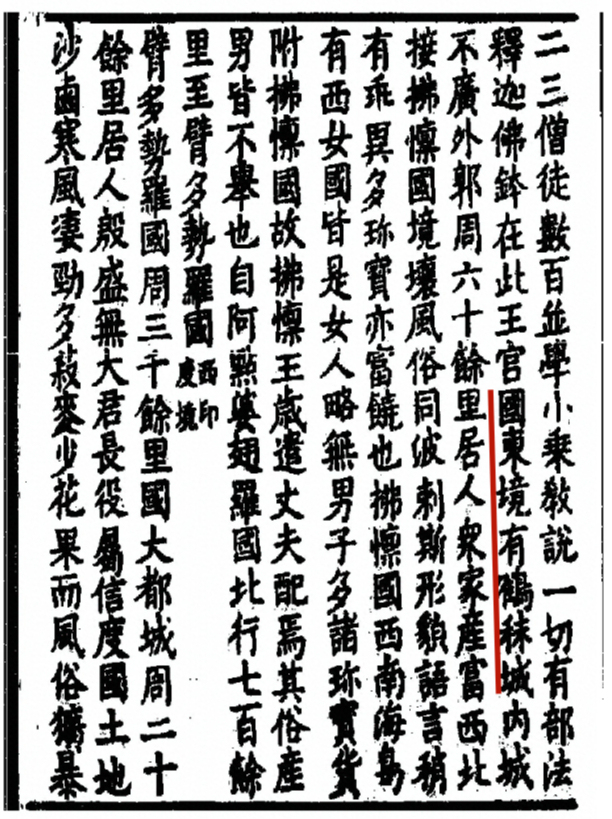 二三僧徒數百並學小乘敎說一切有部法
釋迦佛鉢在此王官國東境有鶴秣城內城
不廣外郭周六十餘里居人衆家産富西北
接拂懍國境壤風俗同波剌斯形貌語言稍
有乖異多珎寶亦富饒也拂懍國西南海島
有西女國皆是女人略無男子多諸珎寶貨
附拂懍國故拂懍王歲遣丈夫配焉其俗産
男皆不舉也自阿㸃婆翅羅國北行七百餘
里至臂多勢羅國西印度境
臂多勢羅國周三千餘里國大都城周二十
餘里居人殷盛無大君長役屬信度國土地
沙鹵寒風淒勁多菽麥少花果而風俗獷暴